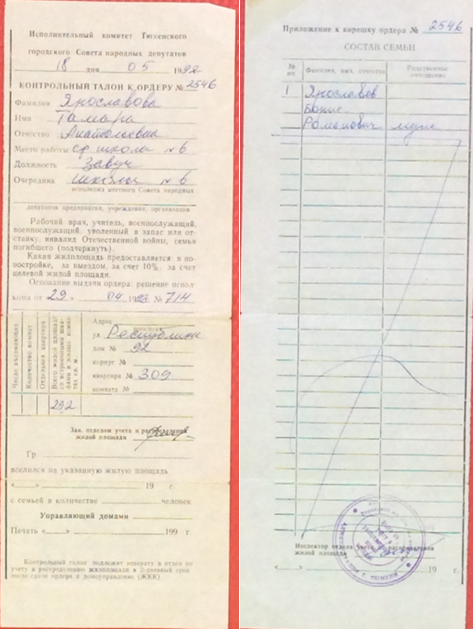 Исполнительный комитет Тюменского
городского Совета народных депутатов
18 дня 05 1992
КОНТРОЛЬНЫЙ ТАЛОН К ОРДЕРУ № 2546
Фамилия Ярославова
Имя Тамара
Отчество Анатольевна
Место работы ср. школа №6
Должность Завуч
Очередник школы №6
исполкома местного Совета народных
депутатов предприятия, учреждения, организации
Рабочий врач, учитель, военнослужащий,
военнослужащий, уволенный в запас или от-
ставку, инвалид Отечественной войны, семья
погибшего (подчеркнуть).
Какая жилплощадь предоставляется в но-
востройке, за выездом, за счет 10%, за счет
целевой жилой площади.
Основание выдачи ордера: решение испол-
кома от 29 04 19 № 714
Число въезжающих
Количество комнат
Отдельная квартира
Всего жилой площади
29,2
Адрес
ул. Республики
дом № 92
корпус №
квартира № 309
комната №
Зав. отделом учета и распределения
жилой площади
Гр
вселился на указанную жилую площадь
«____» 19 г.
с семьей в количестве человек
Управляющий домами
Печать «____» 199 г.
Контрольный талон подлежит возврату в отдел по
учету и распределению жилплощади в 3-дневный срок
после сдачи ордера в домоуправление (ЖКК)
Приложение к корешку ордера № 2546
СОСТАВ СЕМЬИ
№ пп Фамилия, имя, отчество Родственные отношения
1 Ярославов
Борис
Романович муж
Инспектор отдела учета и распределения
жилой площади
«____» 19 г.